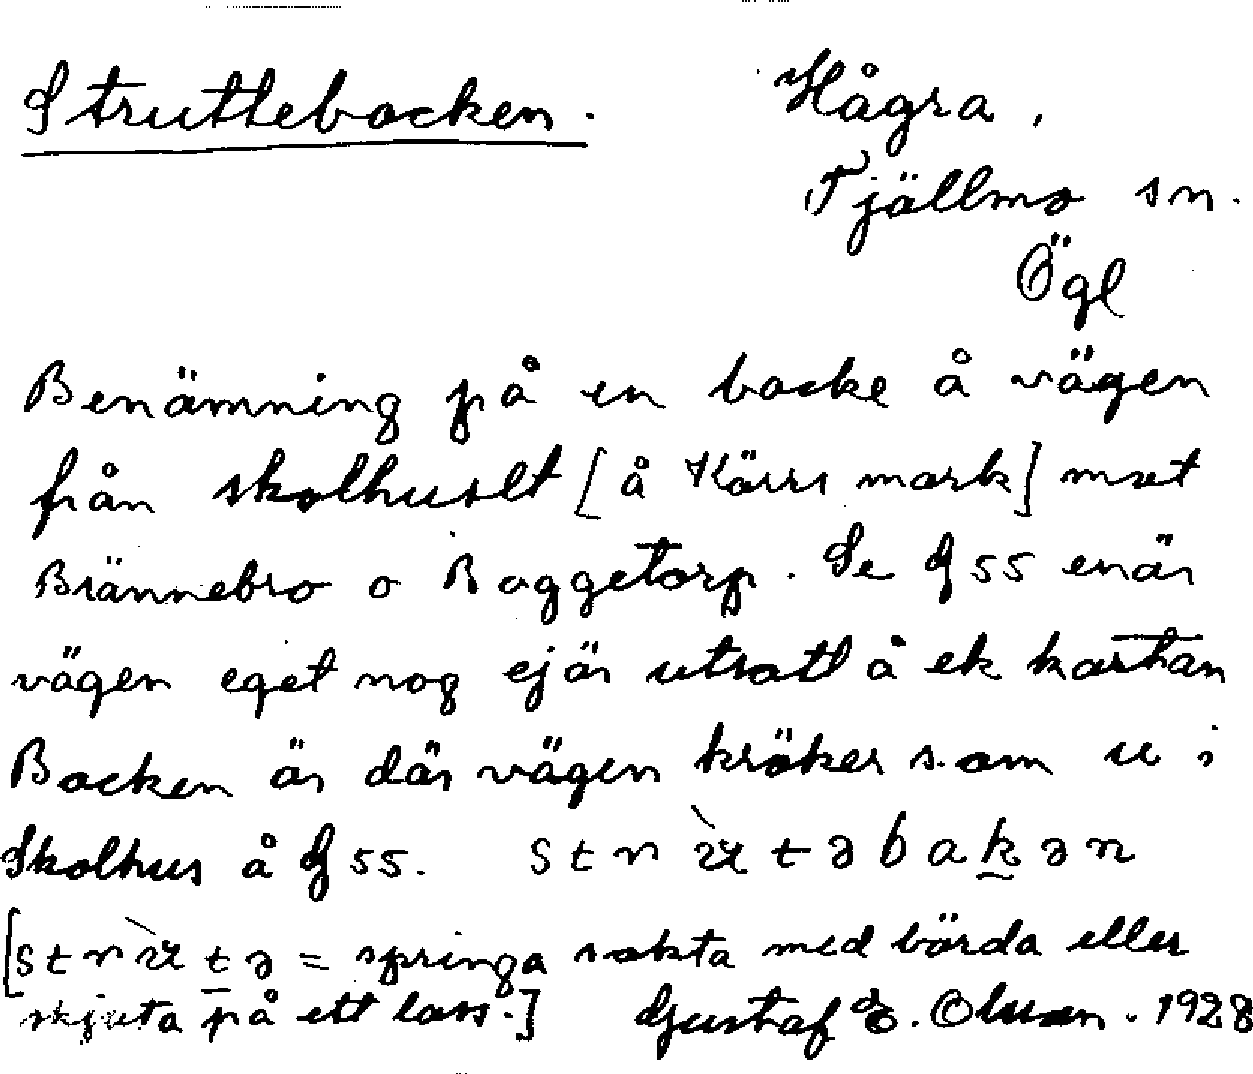 Struttebacken.
Hågra,
Tjällmo sn.
Ögl
Benämning på en backe å vägen
från skolhuset [å Kärrs mark] mot
Brännebro o Baggetorp. Se G 55 enär
vägen eget nog ej är utsatt å ek kartan
Backen är där vägen kröker som u i
Skolhus å G 55. strùtəbakən
[strùtə = springa sakta med börda eller
skjuta på ett lass.] Gustaf E. Olsson. 1928